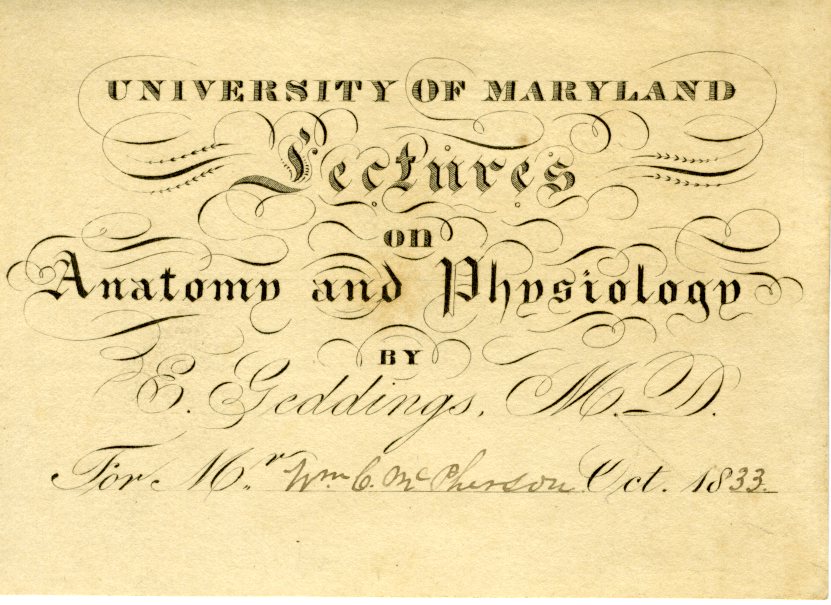 UNIVERSITY OF MARYLAND
Lectures
on
Anatomy and Physiology
BY
E. Geddings, M.D.
For Mr. Wm C. McPherson Oct. 1833.